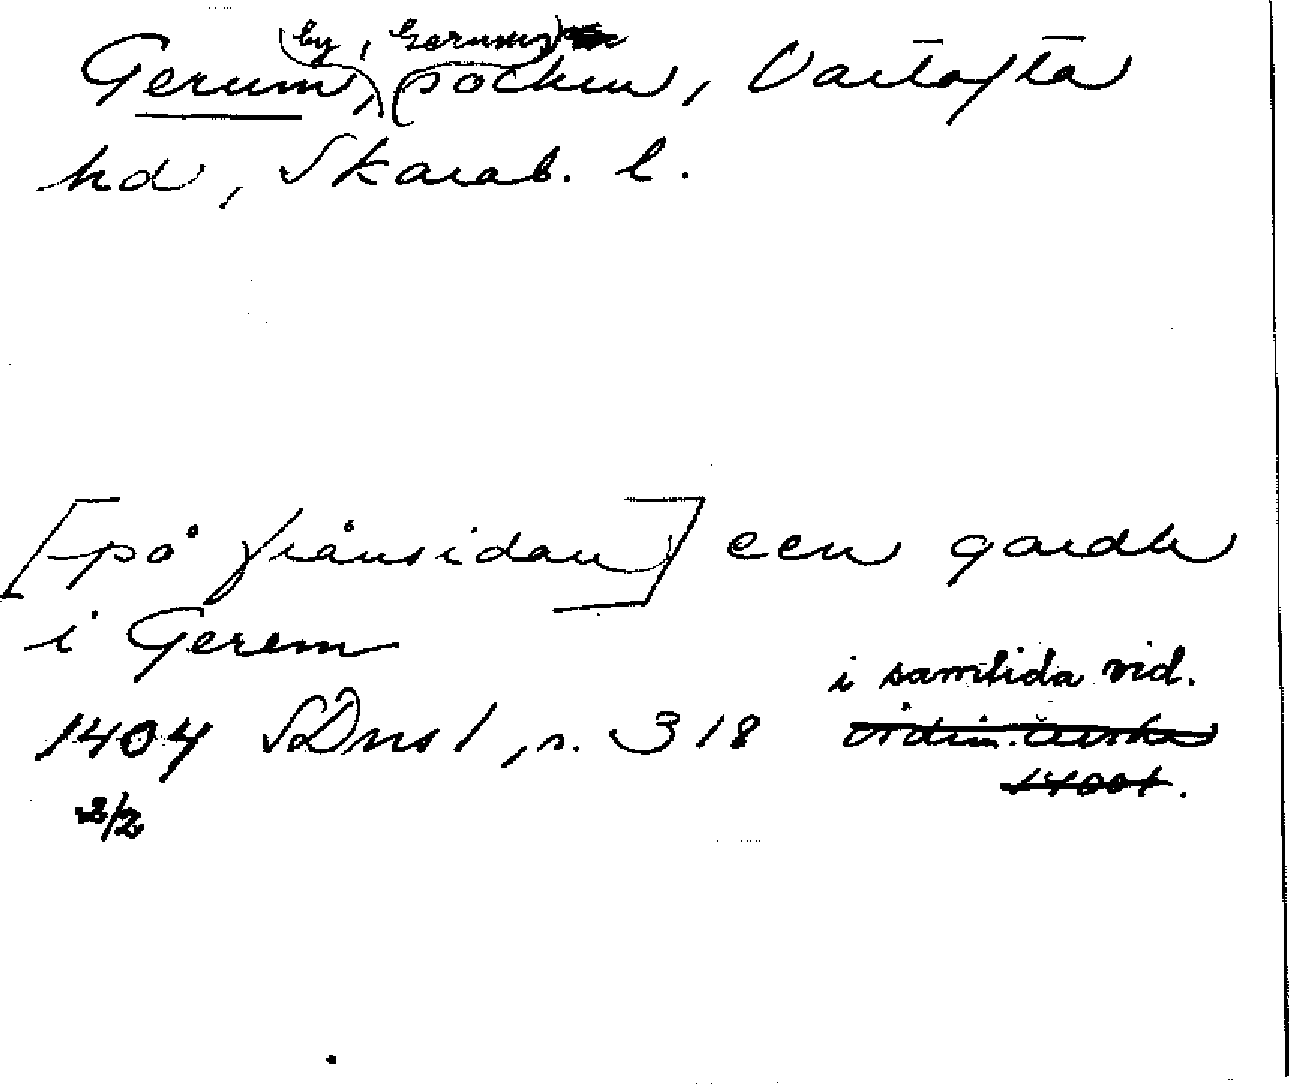 by, Gerums
Gerum, socken, Vartofta
hd, Skarab. l.
[på frånsidan] een gardh
i Gerem
i samtida vid.
1404 SDns 1, s. 318
2/2